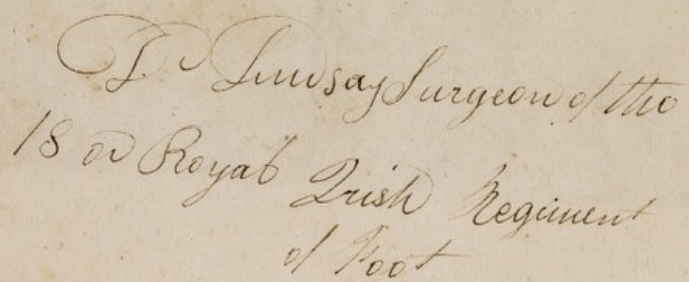 Lindsay Surgeon of the
18 or Royal Irish Regiment
of Foot